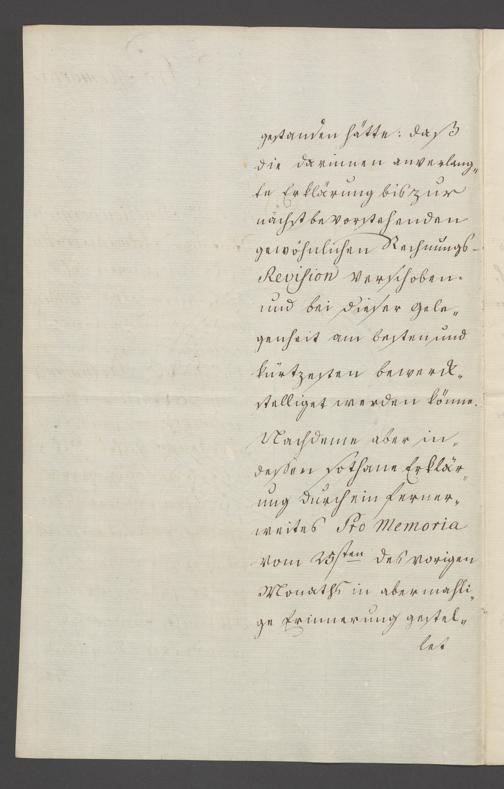 gestanden hätte: daß
die darinnen anverlang„
te Erklärung bis zur
nächst bevorstehenden
gewöhnlichen Rechnungs-
Revision verschoben.
und bei dieser Gele„
genheit am besten und
kürtzesten bewerck„
stelliget werden könne.
Nachdeme aber in„
dessen sothane Erklär„
ung durch ein ferner„
weites Pro Memoria
vom 25sten des vorigen
Monaths in abermahli„
ge Erinnerung gestel„
let